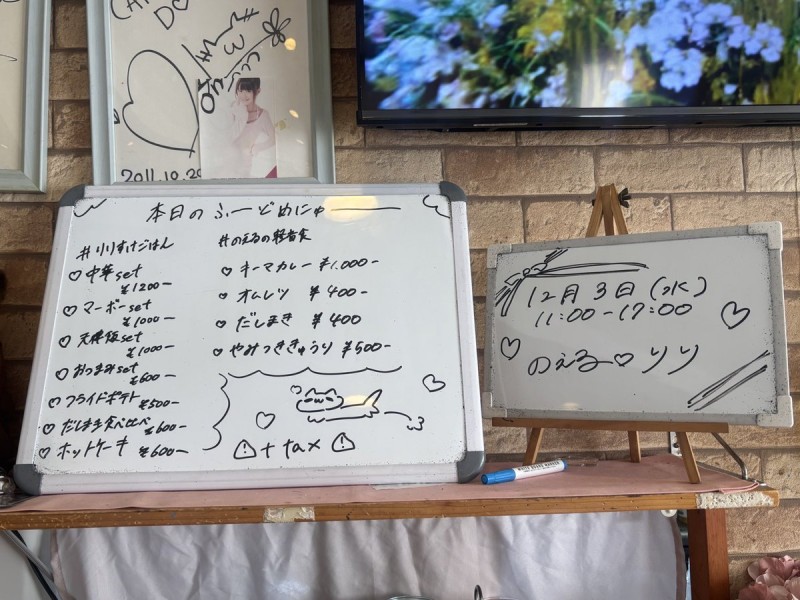 2011.10.20
本日のふーどめにゅー
#りりすけごはん
♡中華set
¥1200-
♡マーボーset
¥1000-
♡天津飯set
¥1000-
♡おつまみset
¥600-
♡フライドポテト
¥500-
♡だしまき食べ比べ
¥600-
♡ホットケーキ ¥600-
#のえるの軽食
♡キーマカレー ¥1.000-
♡オムレツ ¥400-
♡だしまき ¥400
♡やみつききゅうり ¥500-
⚠+tax⚠
12月3日(水)
11:00-17:00
のえる♡りり